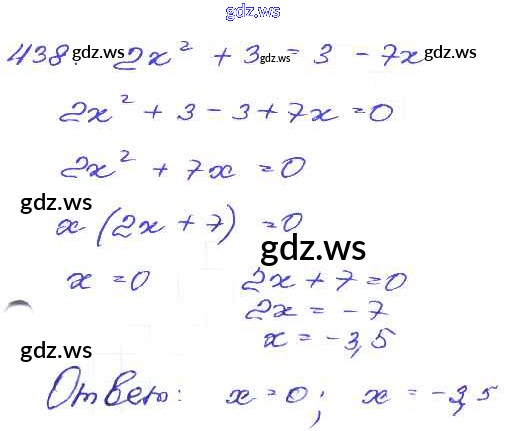 gdz.ws
438. gdz.ws 2x² + 3 gdz.ws = 3 - 7x gdz.ws
2x² + 3 - 3 + 7x = 0
2x² + 7x = 0
gdz.ws
x (2x + 7) = 0
gdz.ws
x = 0 2x + 7 = 0
2x = -7
x = -3,5
gdz.ws
Ответ: x = 0; x = -3,5